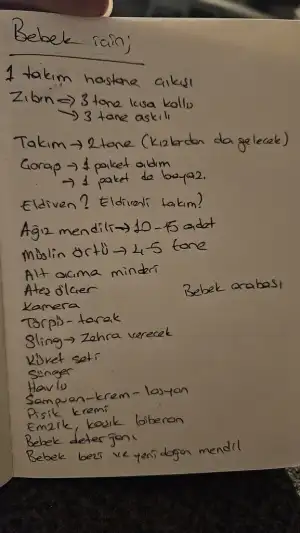 Bebek için;
1 takım hastane çıkışı
Zıbın → 3 tane kısa kollu
→ 3 tane askılı
Takım → 2 tane (kızlardan da gelecek)
Çorap → 1 paket aldım
→ 1 paket de beyaz.
Eldiven? Eldivenli takım?
Ağız mendili → 10-15 adet
Müslin örtü → 4-5 tane
Alt açma minderi
Ateş ölçer
Bebek arabası
Kamera
Törpü-tarak
Sling → Zehra verecek
Küvet seti
Sünger
Havlu
Şampuan-krem-losyon
Pişik kremi
Emzik, kaşık biberon
Bebek deterjanı
Bebek bezi ve yenidoğan mendil